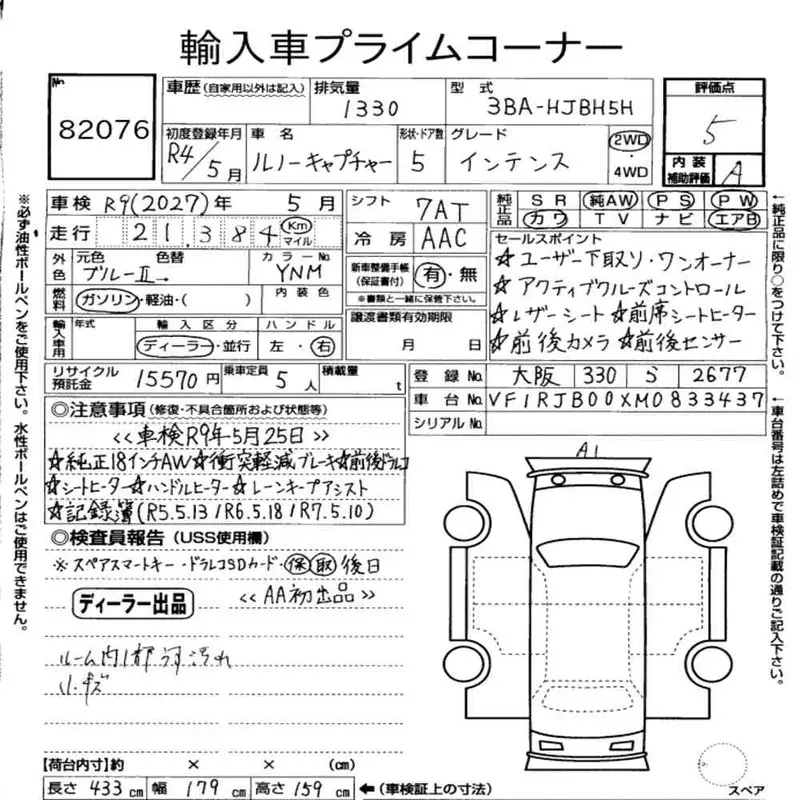 輸入車プライムコーナー
No. 82076
車歴 (自家用以外は記入)
排気量 1330
型式 3BA-HJBH5H
評価点 5
初度登録年月 R4/5月
車名 ルノーキャプチャー
形状・ドア数 5
グレード インテンス
2WD・4WD
内装補助評価 A
車検 R9(2027)年 5月
シフト 7AT
純正品 SR 純AW PS PW
カワ TV ナビ エアB
走行 21,384 Km マイル
冷房 AAC
外色 元色 ブルーII→ 色替 カラーNo. YNM
新車整備手帳(保証書付) 有・無
※書類と一緒に保管下さい。
セールスポイント
☆ユーザー下取り・ワンオーナー
☆アクティブクルーズコントロール
☆レザーシート☆前席シートヒーター
☆前後カメラ☆前後センサー
燃料 ガソリン・軽油・( ) 内装色
譲渡書類有効期限 月 日
輸入車用 年式 輸入区分 ディーラー・並行 ハンドル 左・右
リサイクル預託金 15570円 乗車定員 5人 積載量 t
登録No. 大阪 330 ら 2677
車台No. VF1RJB00XM0833437
シリアルNo.
◎注意事項(修復・不具合箇所および状態等)
≪車検R9年5月25日≫
☆純正18インチAW☆衝突軽減ブレーキ☆前後ドラレコ
☆シートヒーター☆ハンドルヒーター☆レーンキープアシスト
☆記録簿(R5.5.13/R6.5.18/R7.5.10)
◎検査員報告(USS使用欄)
※スペアスマートキー・ドラレコSDカード・保取後日
ディーラー出品
≪AA初出品≫
ルーム内1部
汚れ
小キズ
A1
【荷台内寸】約 × × (cm)
長さ 433cm 幅 179cm 高さ 159cm ←(車検証上の寸法)
スペア
※必ず油性ボールペンをご使用下さい。水性ボールペンはご使用できません。
←純正品に限り○をつけて下さい。
←車台番号は左詰めで車検証記載の通りご記入下さい。